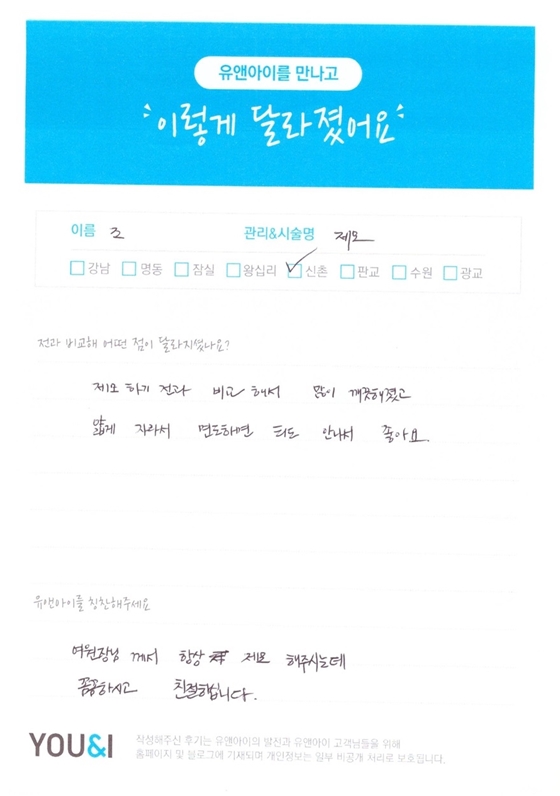 유앤아이를 만나고
이렇게 달라졌어요
이름 조 관리&시술명 제모
강남 명동 잠실 왕십리 신촌 판교 수원 광교
전과 비교해 어떤 점이 달라지셨나요?
제모 하기 전과 비교 해서 많이 깨끗해졌고
얇게 자라서 면도하면 티도 안나서 좋아요.
유앤아이를 칭찬해주세요
여원장님 께서 항상 제모 해주시는데
꼼꼼하시고 친절하십니다.
YOU&I
작성해주신 후기는 유앤아이의 발전과 유앤아이 고객님들을 위해
홈페이지 및 블로그에 기재되며 개인정보는 일부 비공개 처리로 보호됩니다.